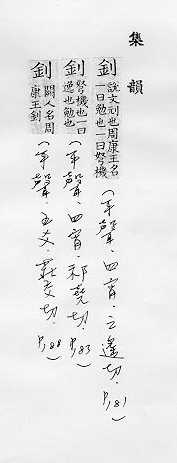 集韻
釗
說文刓也周康王名
一曰勉也一曰弩機
(平聲.四宵.之遙切.P.181)
釗
弩機也一曰
遠也勉也
(平聲.四宵.祁堯切.P.183)
釗
闕人名周
康王釗
(平聲.五爻.莊交切.P.188)